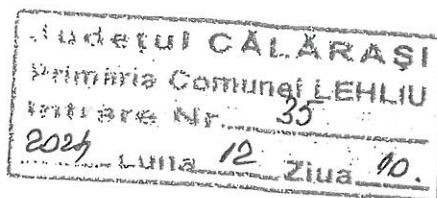 Județul CĂLĂRAȘI
Primăria Comunei LEHLIU
Intrare Nr. 35
2024 Luna 12 Ziua 10.